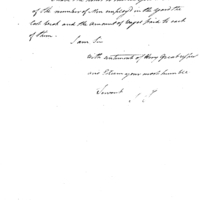 of the number of Men employed in the yard the
last Week and the amount of wages paid to each
of them.
I am Sir
with sentiments of
and Esteem your most humble
Servant